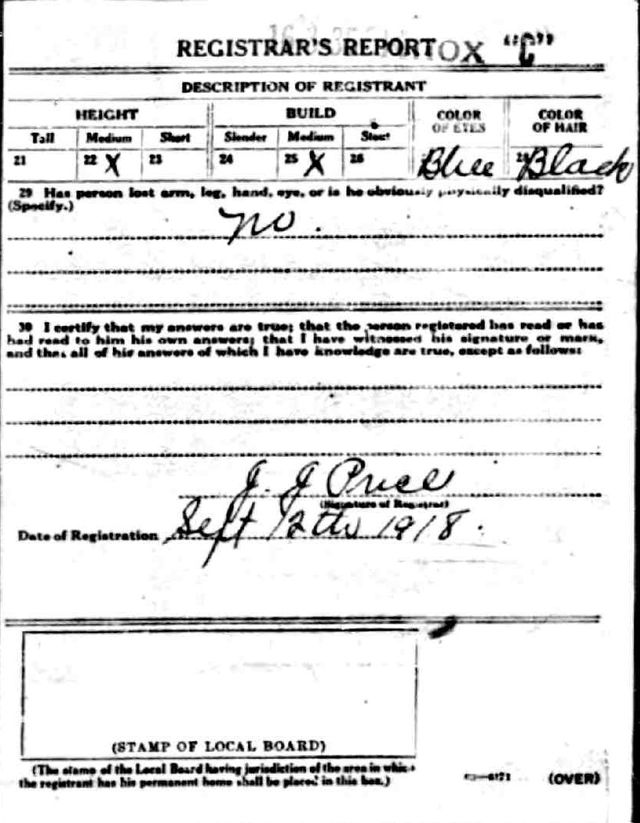 REGISTRAR'S REPORT OX "C"
DESCRIPTION OF REGISTRANT
HEIGHT BUILD COLOR OF EYES COLOR OF HAIR
Tall Medium Short Slender Medium Stout
21 22 X 23 24 25 X 26 Blue 28 Black
29 Has person lost arm, leg, hand, eye, or is he obviously physically disqualified?
(Specify.)
no.
30 I certify that my answers are true; that the person registered has read or has
had read to him his own answers; that I have witnessed his signature or mark,
and that all of his answers of which I have knowledge are true, except as follows:
J. J Price
(Signature of Registrar)
Date of Registration Sept 12th 1918.
(STAMP OF LOCAL BOARD)
(The stamp of the Local Board having jurisdiction of the area in which
the registrant has his permanent home shall be placed in this box.)
(OVER)